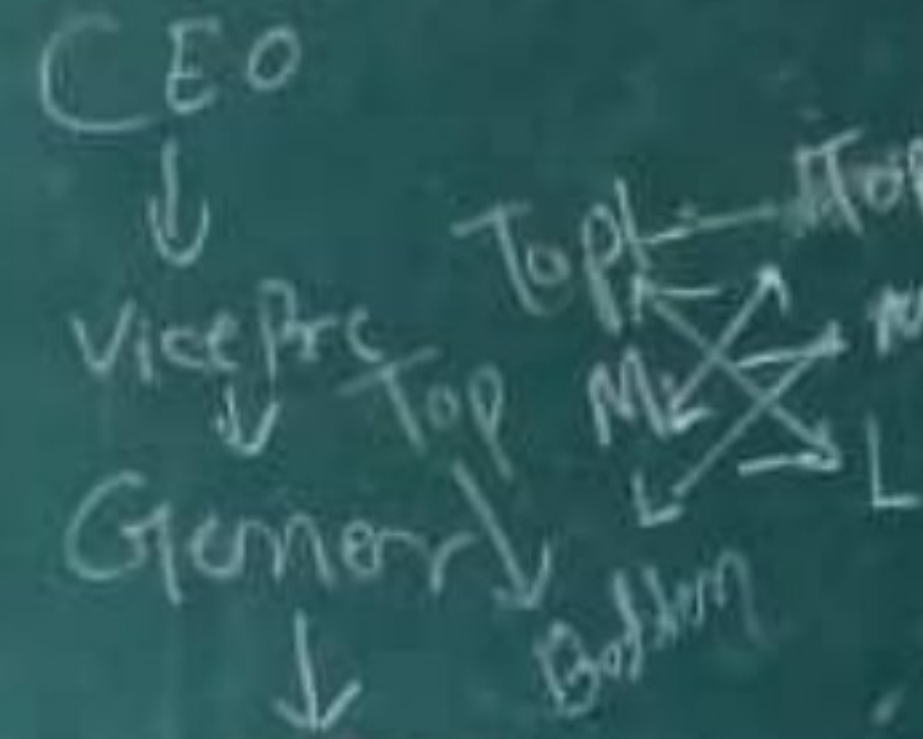 CEO
Vice Pre
Gener
Top
Bottom
Top
M
L
Top
M
L